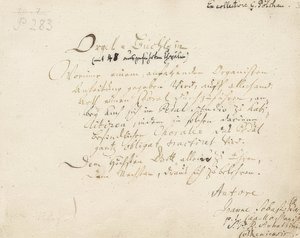 Ex collectione G. Pölchau.
P 283
Orgel-Büchlein
(mit 48 ausgeführten Chorälen)
Worinne einem anfahenden Organisten
Anleitung gegeben wird, auff allerhand
Arth einen Choral durchzuführen, an-
bey auch sich im Pedal studio zu habi-
litiren, indem in solchen darinne
befindlichen Choralen das Pedal
gantz obligat tractiret wird.
Dem Höchsten Gott allein zu Ehren,
Dem Nechsten, draus sich zu belehren.
Autore
Joanne Sebast
p. t. Capellae
S. P. R. Anhaltini-
Cotheniensis